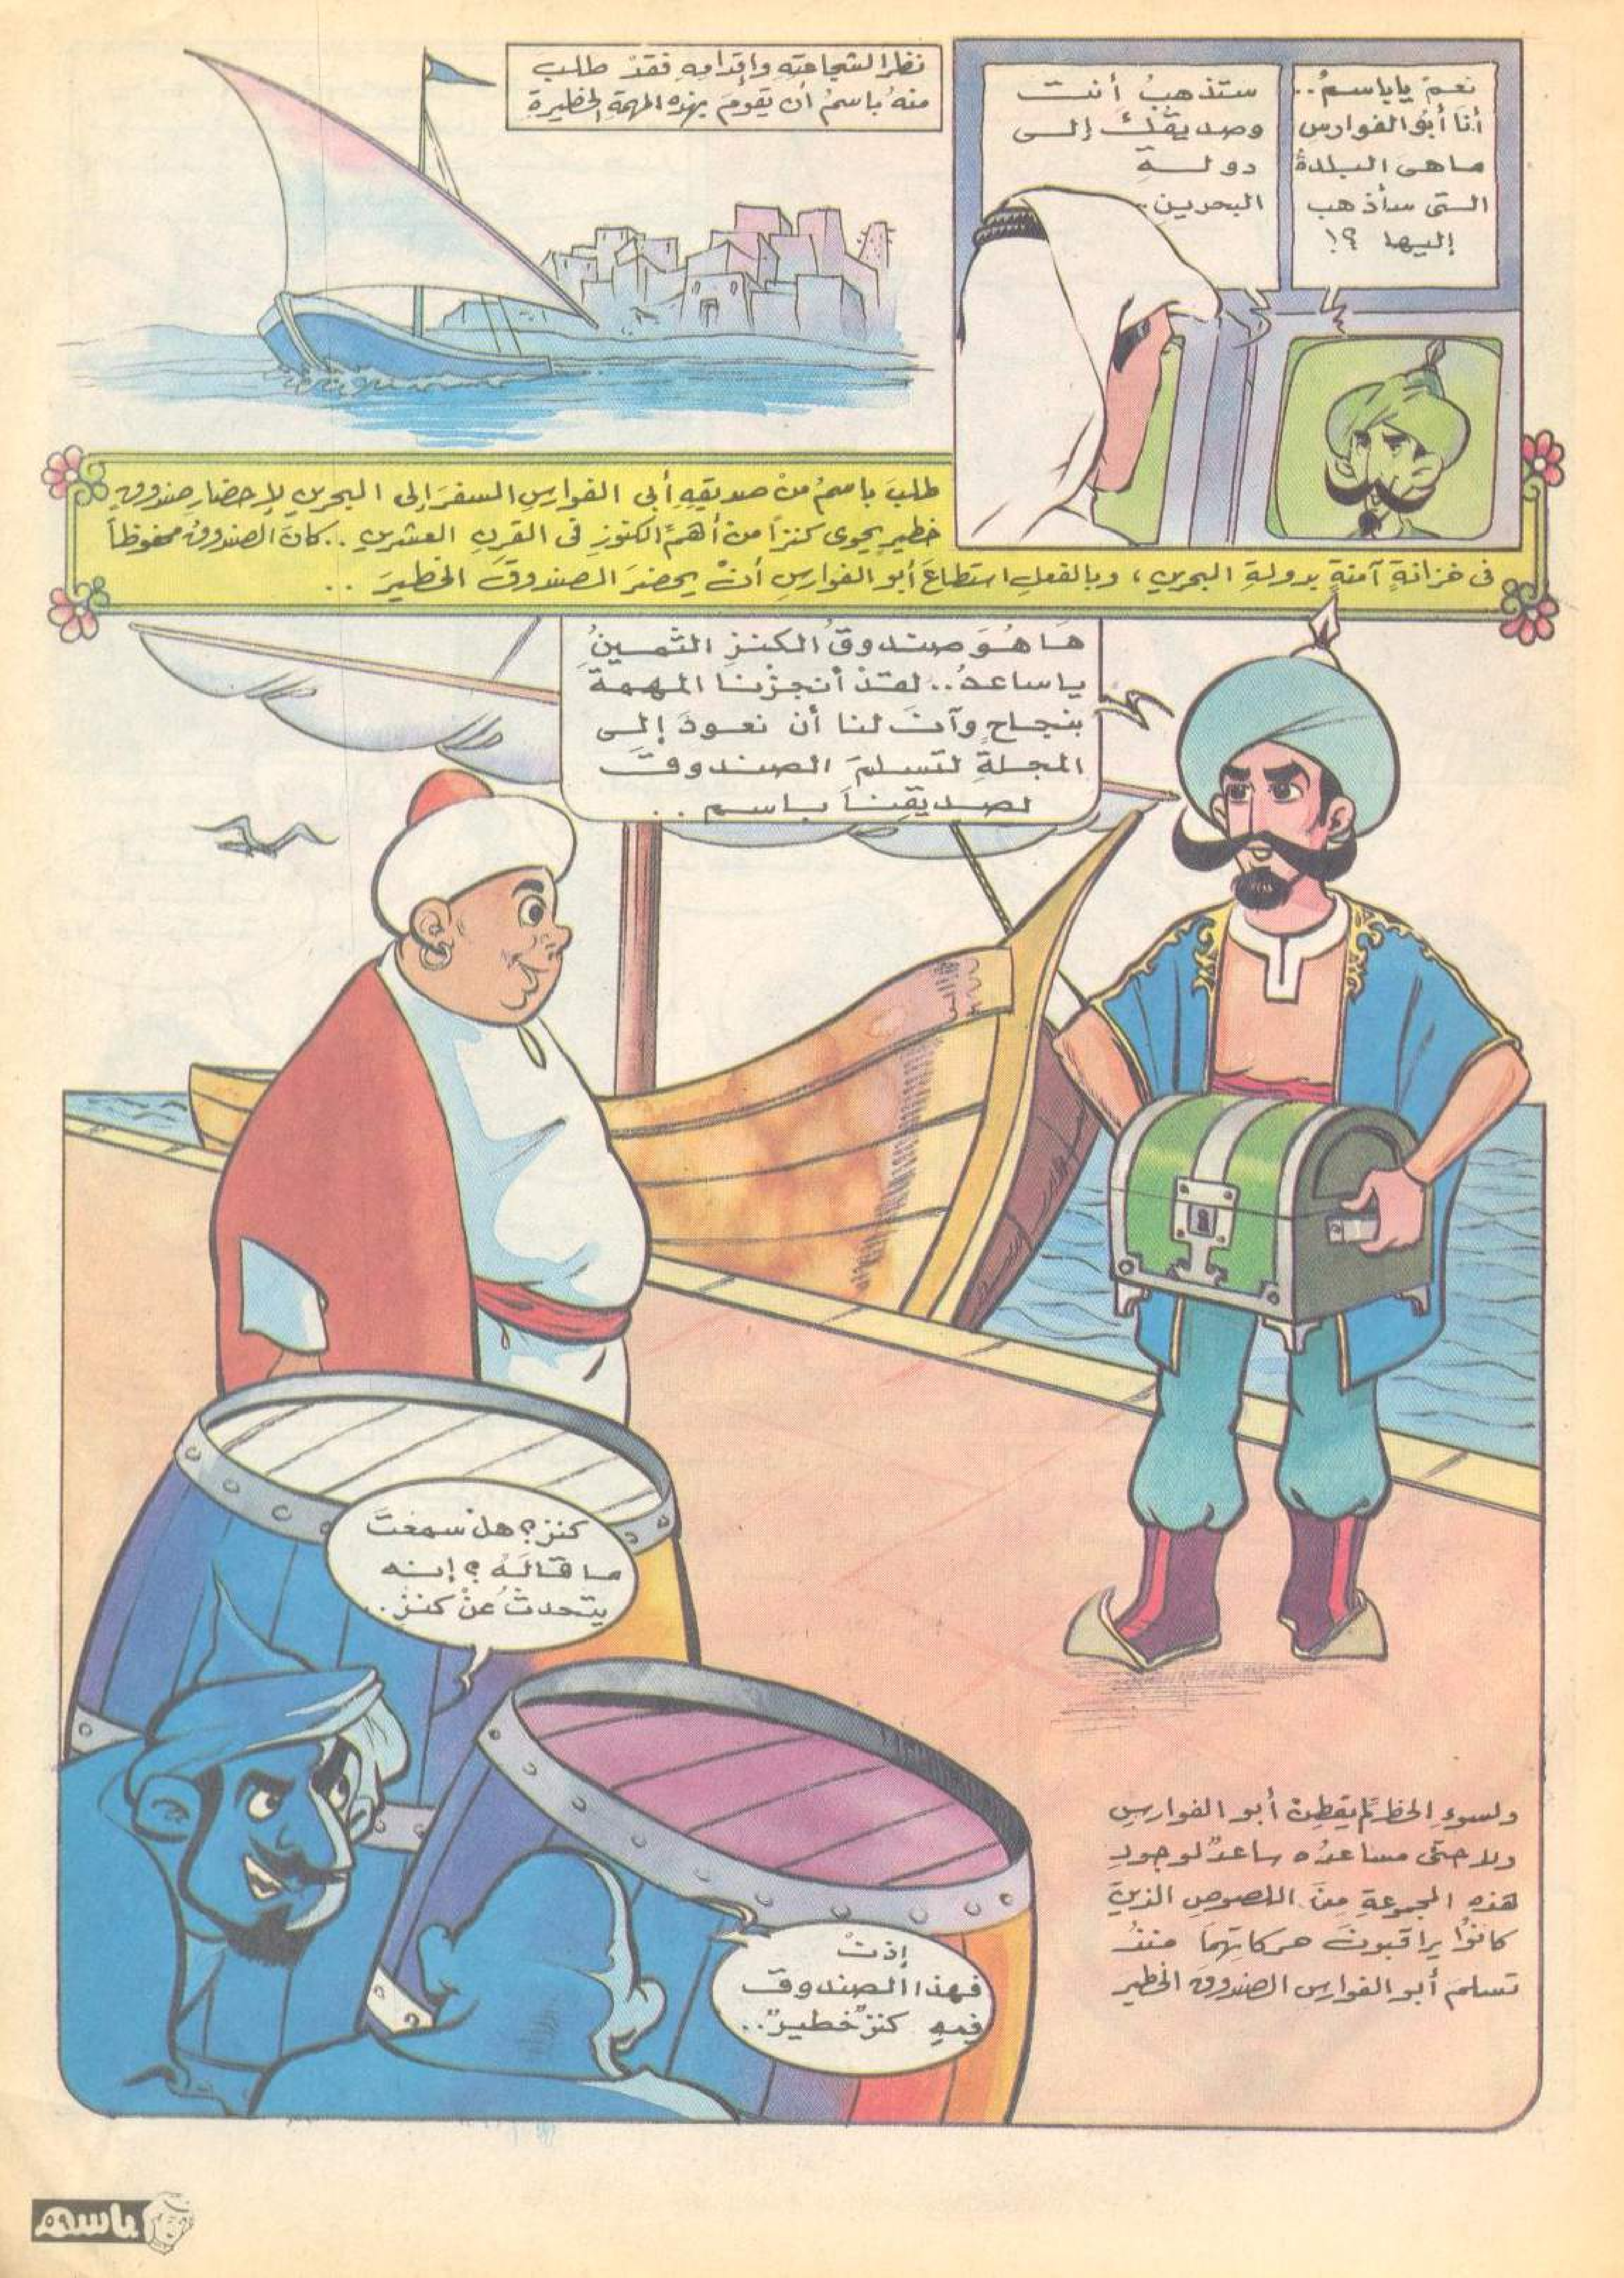 نعم ياباسمُ..
أنا أبو الفوارس
ما هى البلدةُ
التى سأذهب
إليها ؟!
ستذهبُ أنت
وصديقُك إلى
دولة
البحرين..
نظراً لشجاعتِهِ وإقدامِهِ فقدْ طلبَ
منهُ باسمُ أن يقومَ بهذه المهمة الخطيرة
طلبَ باسمُ منْ صديقِهِ أبى الفوارسِ السفرَ إلى البحرين لإحضارِ صندوقٍ
خطيرٍ يحوى كنزاً من أهمِّ الكنوزِ فى القرنِ العشرين .. كانَ الصندوقُ محفوظاً
فى خزانةٍ آمنةٍ بدولةِ البحرين ، وبالفعلِ استطاعَ أبو الفوارسِ أنْ يحضرَ الصندوقَ الخطيرَ ..
ها هُوَ صندوقُ الكنزِ الثمينُ
ياساعدُ.. لقدْ أنجزْنا المهمةَ
بنجاحٍ وآنَ لنا أن نعودَ إلى
المجلةِ لتسلمَ الصندوقَ
لصديقِنا باسم ..
كنز؟ هلْ سمعْتَ
ما قالَهُ ؟ إنه
يتحدثُ عنْ كنزٍ..
إذنْ
فهذا الصندوقَ
فيهِ كنزٌ خطيرٌ..
ولسوءِ الحظِ لمْ يفطِنْ أبو الفوارسِ
ولا حتى مساعدُه ساعدٌ لوجودِ
هذهِ المجموعةِ منَ اللصوصِ الذينَ
كانوُا يراقبونَ حركاتِهما منذُ
تسلمَ أبو الفوارسِ الصندوقَ الخطير
باسم